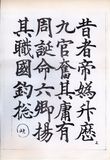 昔者帝媯升歷
九官奮其庸有
周誕命六卿揚
其職國鈞捴